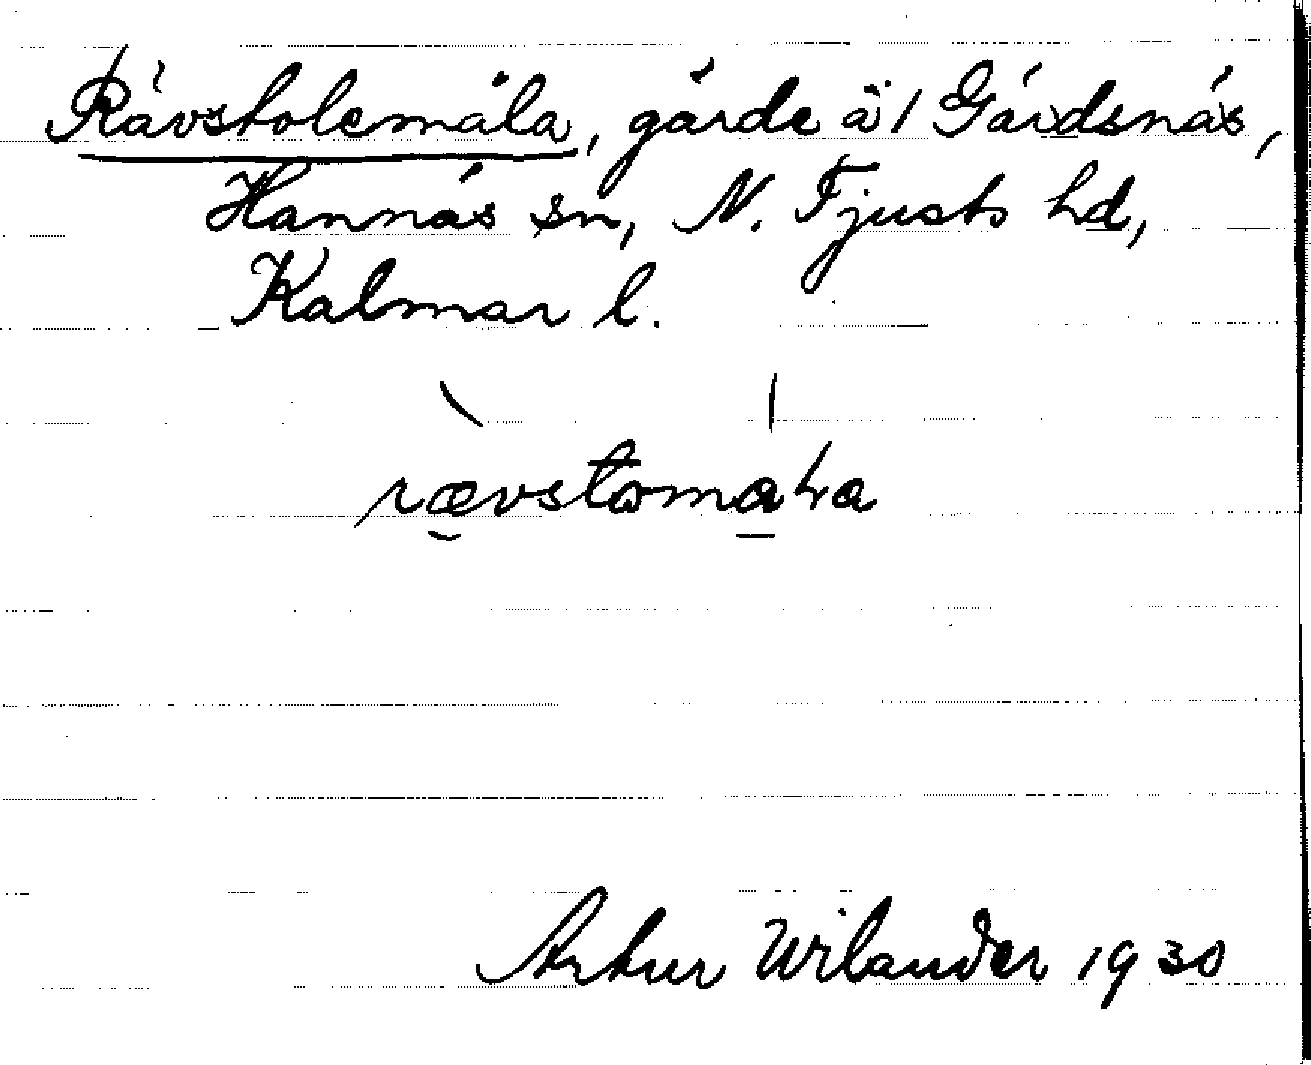 Rävstolemåla, gärde ä 1 Gärdsnäs,
Hannäs sn, N. Tjusts hd,
Kalmar l.
rævstomaka
Artur Wilander 1930